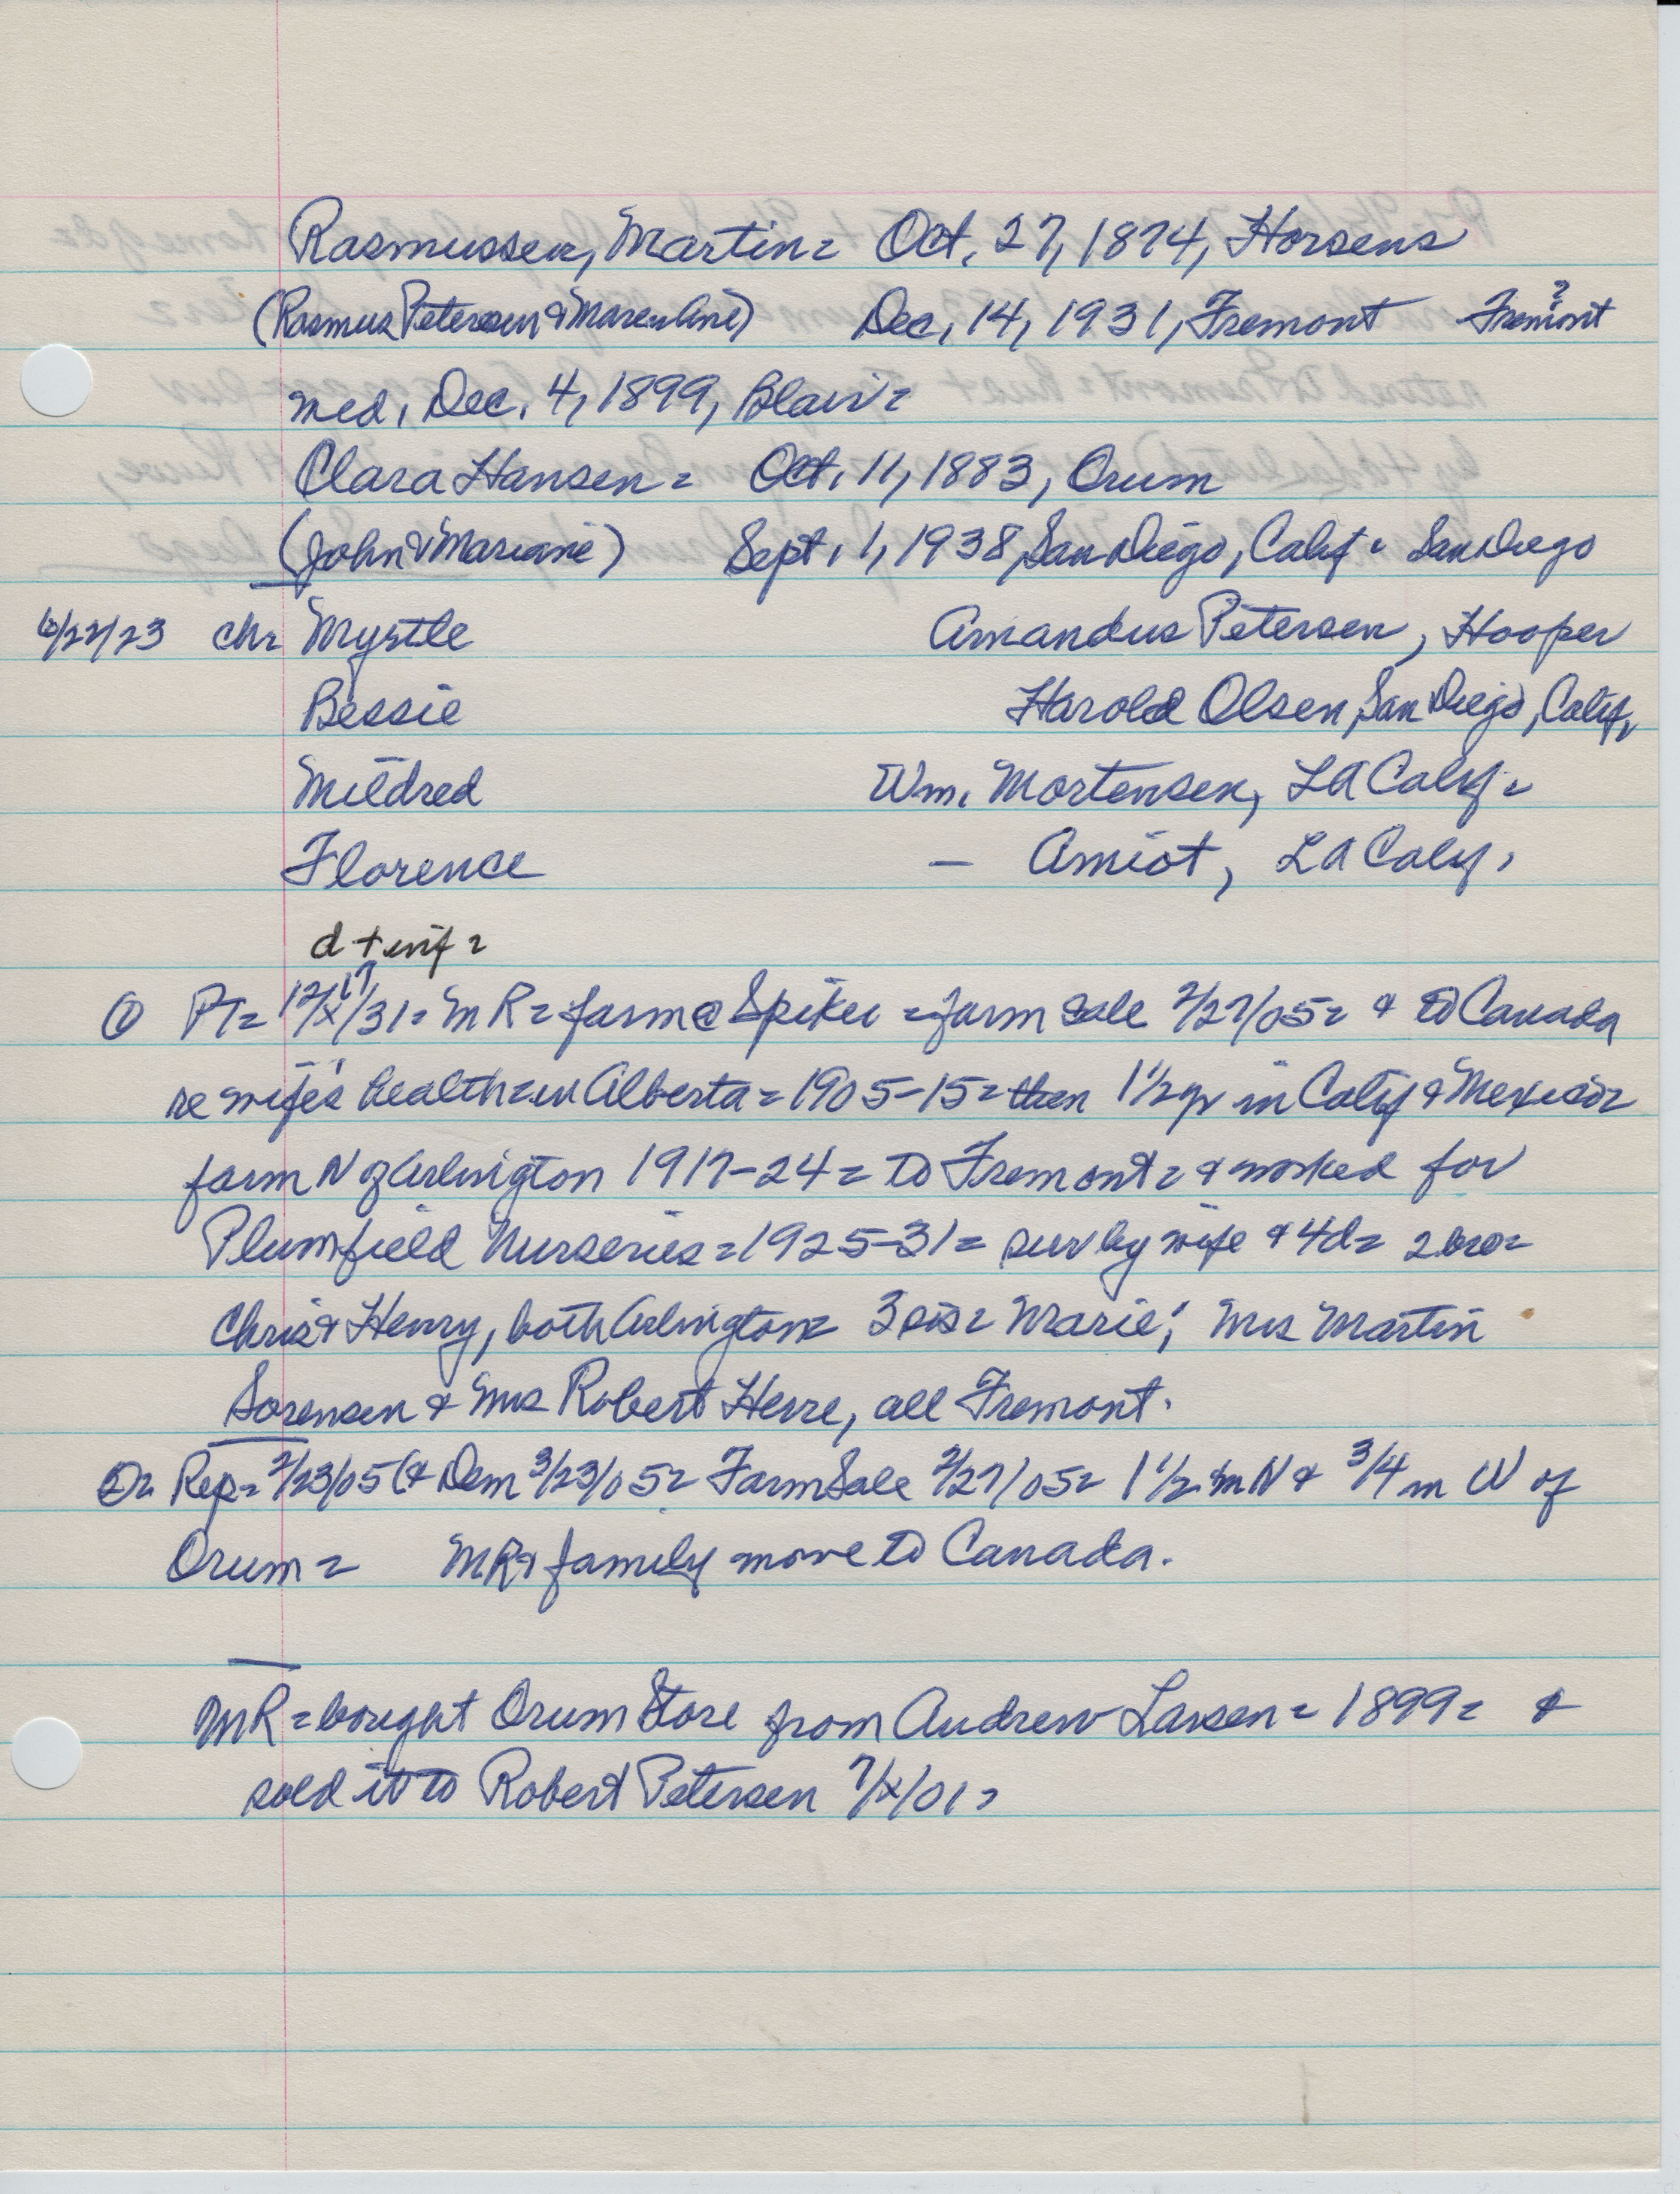 Rasmussen, Martin = Oct. 27, 1874, Horsens
(Rasmus Petersen & Maren Ane) Dec. 14, 1931, Fremont Fremont ?
med. Dec. 4, 1899, Blair =
Clara Hansen = Oct. 11, 1883, Orum
(John & Mariane) Sept. 1, 1938, San Diego, Calif = San Diego
6/22/23 chr Myrtle Amandus Petersen, Hooper
Bessie Harold Olsen, San Diego, Calif,
Mildred Wm. Mortensen, LA Calif =
Florence — Amiot, LA Calif.
d + inf =
① PT = 12/17/31 = MR = farm @ Spiker = farm sale 2/27/05 = & to Canada
re wife's health = in Alberta = 1905-15 = then 1 1/2 yr in Calif & Mexico =
farm N of Arlington 1917-24 = to Fremont = & worked for
Plumfield Nurseries = 1925-31 = surv by wife & 4d = 2 bro =
Chris & Henry, both Arlington = 3 sis = Marie; Mrs Martin
Sorensen & Mrs Robert Herre, all Fremont.
② Rep = 2/23/05 (& Dem 3/23/05 = Farm Sale 2/27/05 = 1 1/2 m N & 3/4 m W of
Orum = MR & family move to Canada.
MR = bought Orum Store from Andrew Larsen = 1899 = &
sold it to Robert Petersen 7/x/01 =